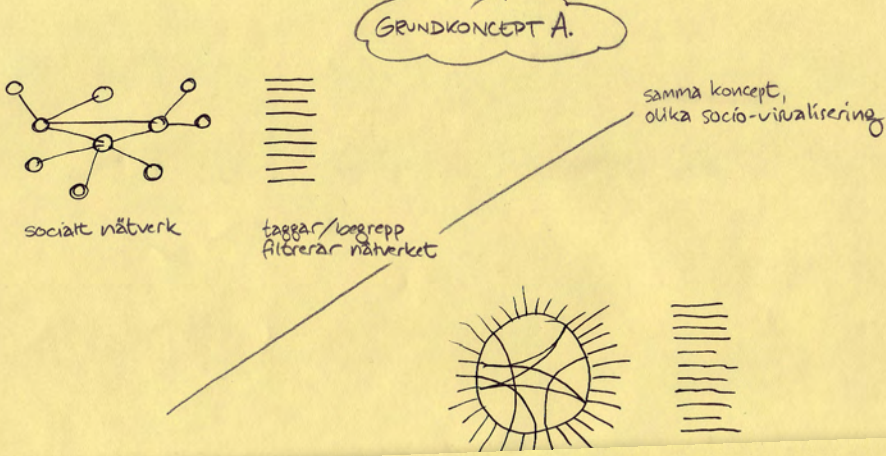 GRUNDKONCEPT A.
samma koncept,
olika socio-visualisering
socialt nätverk
taggar/begrepp
filtrerar nätverket